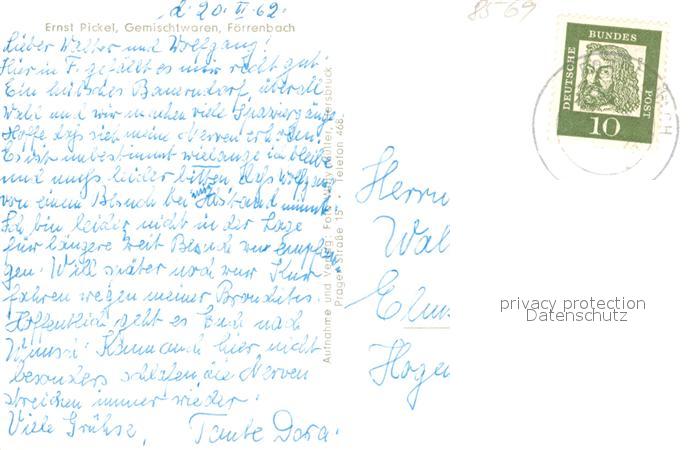 d. 20. VI. 62.
85-69
Ernst Pickel, Gemischtwaren, Förrenbach
Lieber Walter und Wolfgang!
Hier in F. gefällt es mir recht gut.
Ein hübsches Bauerndorf, überall
Wald und wir machen viele Spaziergänge
Hoffe daß sich meine Nerven erholen.
Es ist unbestimmt wielange ich bleibe
und muß leider bitten, daß Wolfgang
von einem Besuch bei mir Abstand nimmt
Ich bin leider nicht in der Lage
für längere Zeit Besuch zu empfan
gen. Will später noch zur Kur
fahren wegen meiner Bronchitis.
Hoffentlich geht es Euch nach
Wunsch. Kann auch hier nicht
besonders schlafen, die Nerven
streichen immer wieder.
Viele Grüße, Tante Dora.
Aufnahme und Verlag: Foto
Prager Straße 15 · Telefon 468
DEUTSCHE BUNDES POST
10
Herrn
Wal
Hogen
privacy protection
Datenschutz